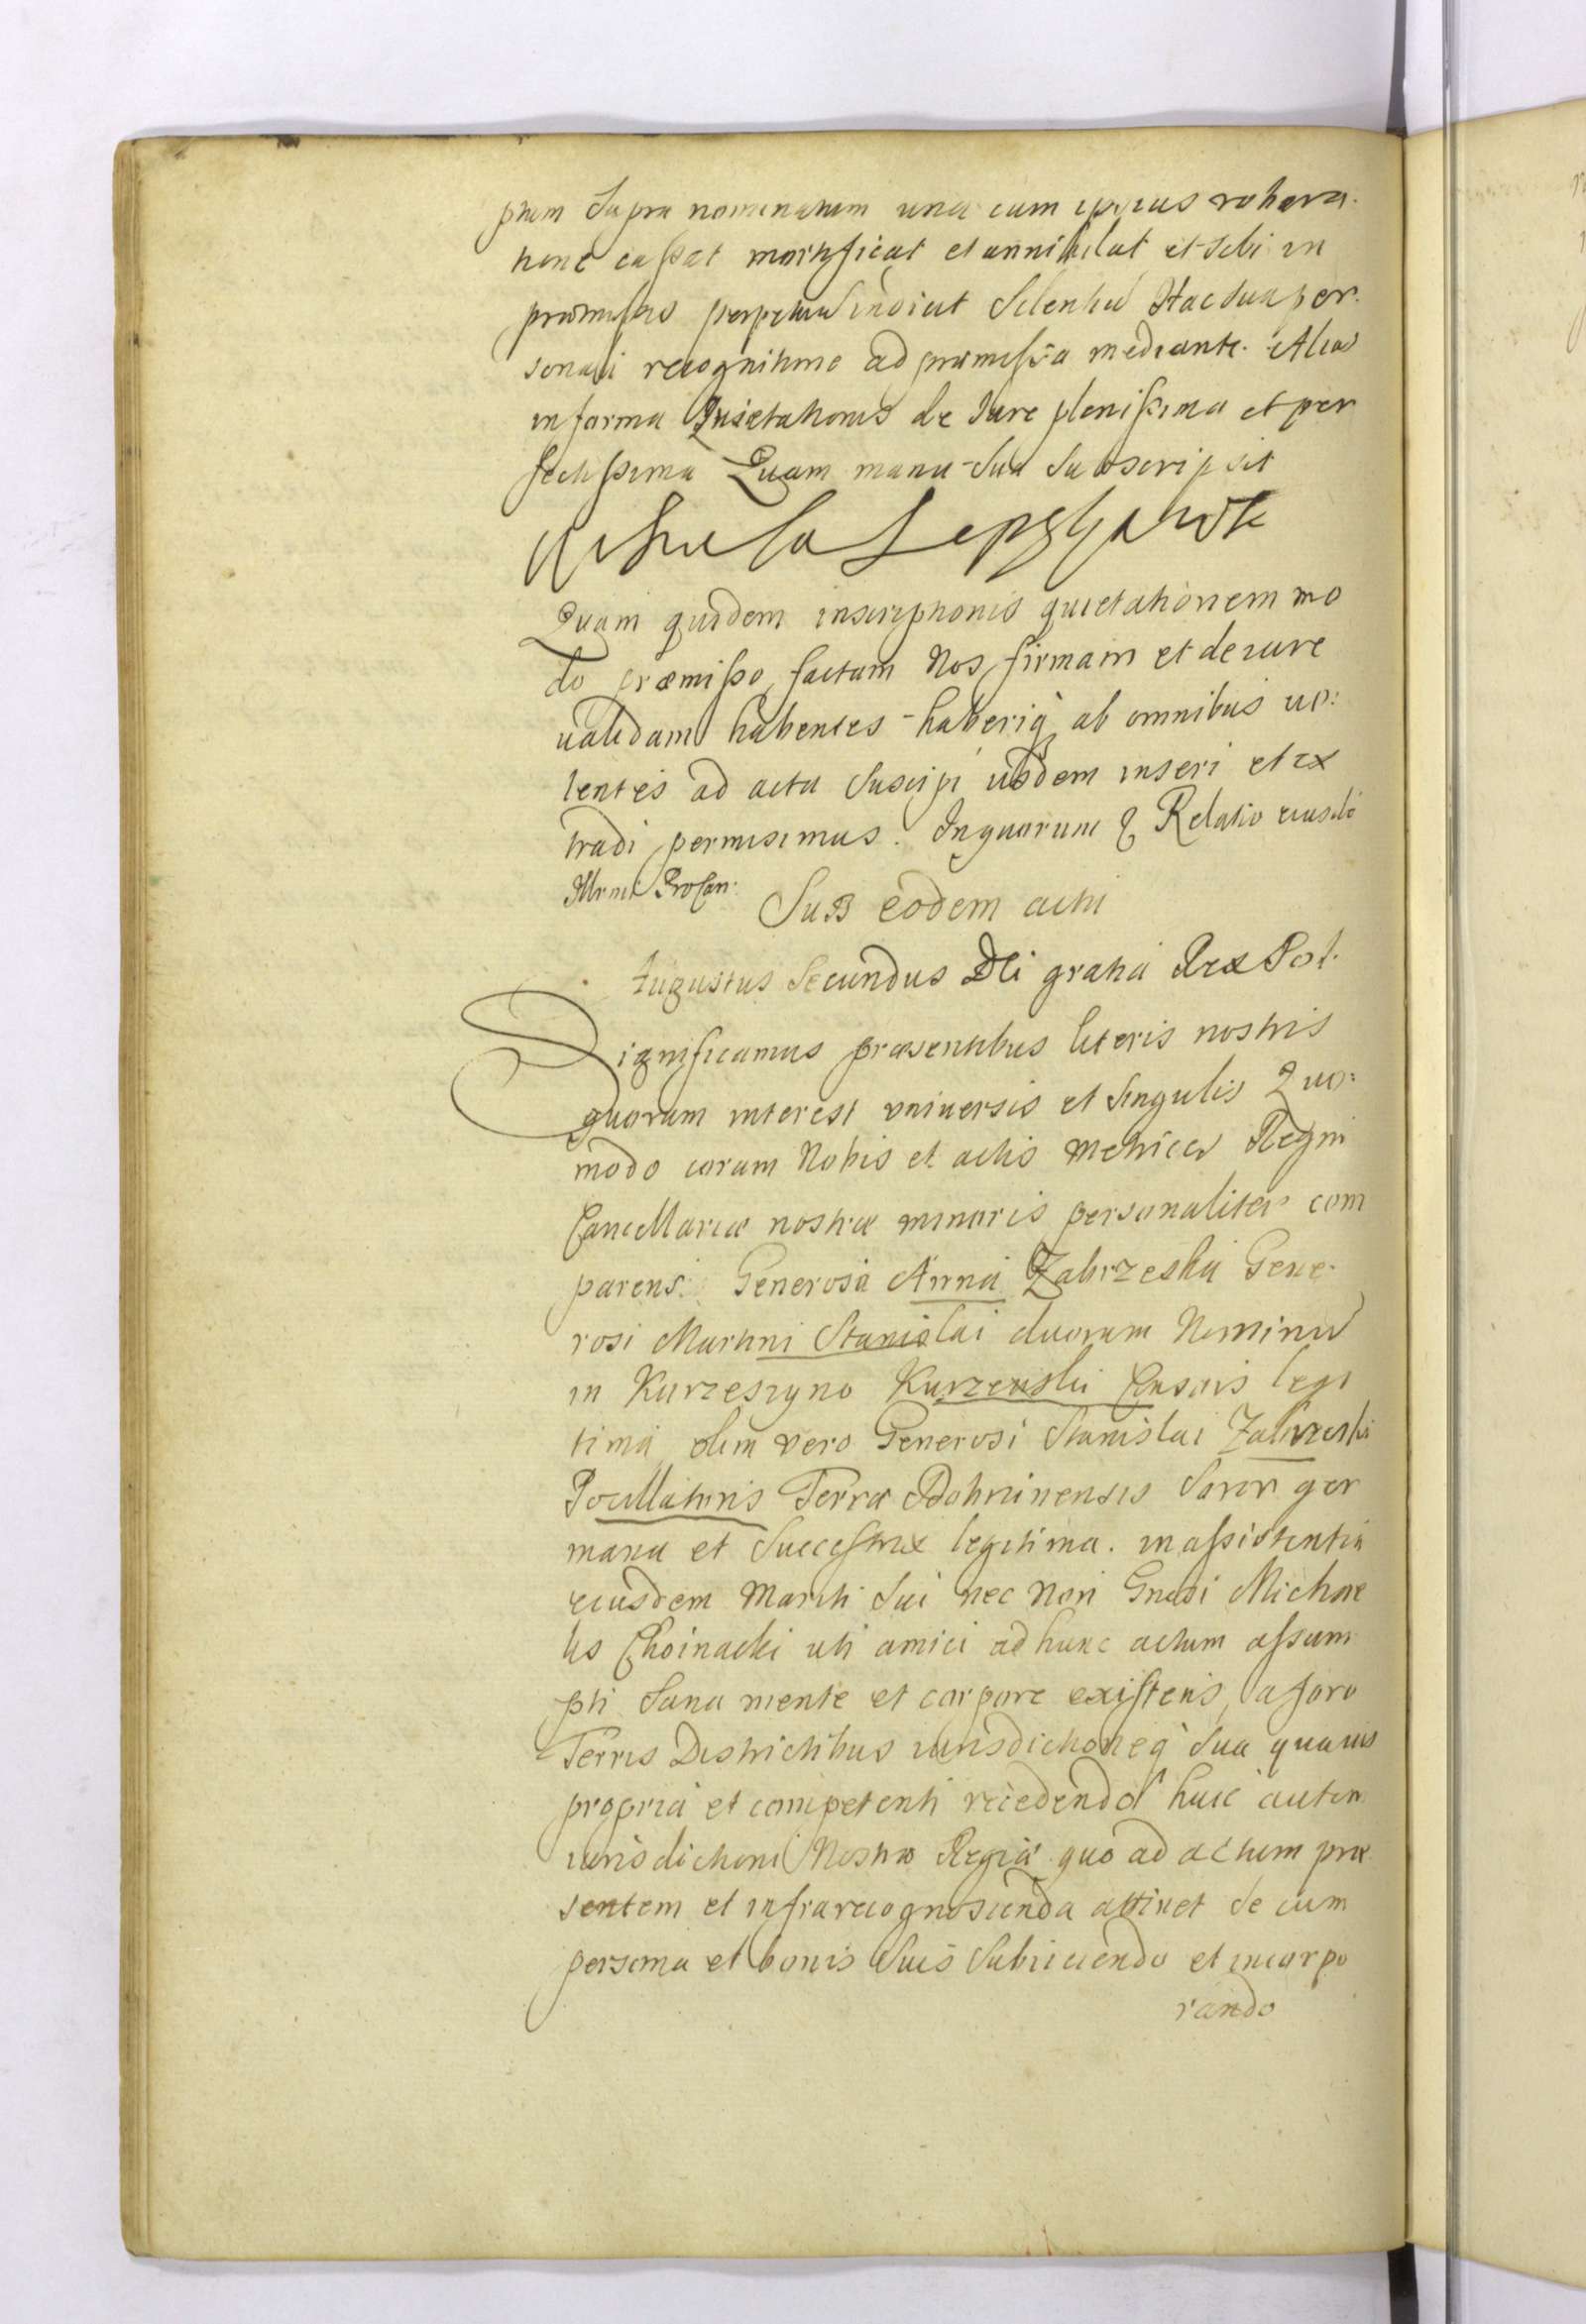 ptum supra nominatum una cum ipsius robora-
tione cassat mortificat et annihilat et sibi in
præmissis perpetuũ indicit silentiũ Hac sua per-
sonali recognitione ad præmissa mediante. Alias
in forma Quietationis de iure plenissima et per
fectissima Quam manu sua subscripsit
Quam quidem inscriptionis quietationem mo
do præmisso factam Nos firmam et de iure
ualidam habentes haberiq ab omnibus uo:
lentes ad acta suscipi iisdem inseri et ex
tradi permisimus. In quorum & Relatio eiusdẽ
Illrmi ProCan:
Sub eodem actu
Augustus Secundus Dei gratia Rex Pol.
Significamus præsentibus literis nostris
quorum interest vniuersis et singulis Quo:
modo coram Nobis et actis Metricæ Regni
Cancellariæ nostræ minoris personaliter com
parens Generosa Anna Zabrzeska Gene-
rosi Martini Stanislai duorum Nominũ
in Kurzeszyno Kurzenski Consors legi
tima, olim vero Generosi Stanislai Zabrzeski
Pocillatoris Terræ Dohicinensis Soror ger
mana et Successtrix legitima. in assistentia
eiusdem Mariti sui nec non Gnosi Michae
lis Choinacki uti amici ad hunc actum assum
pti sana mente et corpore existens, a foro
Terris Districtibus iurisdictioneq sua quauis
propria et competenti recedendo huic autem
iurisdictioni Nostræ Regiæ quo ad actum præ
sentem et infrarecognoscenda attinet se cum
persona et bonis suis subiiciendo et incorpo
rando